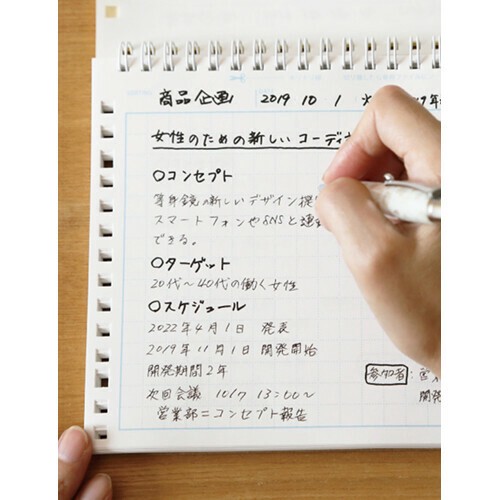 商品企画 2019 10 1 火 19年
女性のための新しい コーディ
○コンセプト
等身鏡の新しいデザイン提
スマートフォンやSNSと連
できる。
○ターゲット
20代〜40代の働く女性
○スケジュール
2022年4月1日 発表
2019年11月1日 開発開始
開発期間2年
参加者:宮
次回会議 10/7 13:00〜
開発
営業部=コンセプト報告